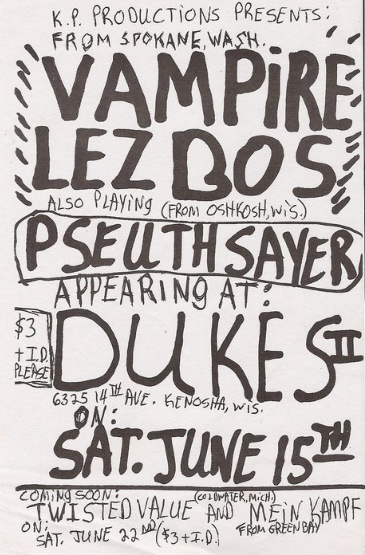 K.P. PRODUCTIONS PRESENTS:
FROM SPOKANE, WASH.
VAMPiRE
LEZ BOS
ALSO PLAYiNG (FROM OSHKOSH, WiS.)
PSEUTHSAYER
APPEARiNG AT:
$3
+ I.D.
PLEASE
DUKES II
6325 14TH AVE. KENOSHA, WIS.
ON:
SAT. JUNE 15TH
COMING SOON:
(COLDWATER, MICH.)
TWISTED VALUE AND MEiN KAMPF
FROM GREEN BAY
ON:
SAT. JUNE 22ND ($3 + I.D.)